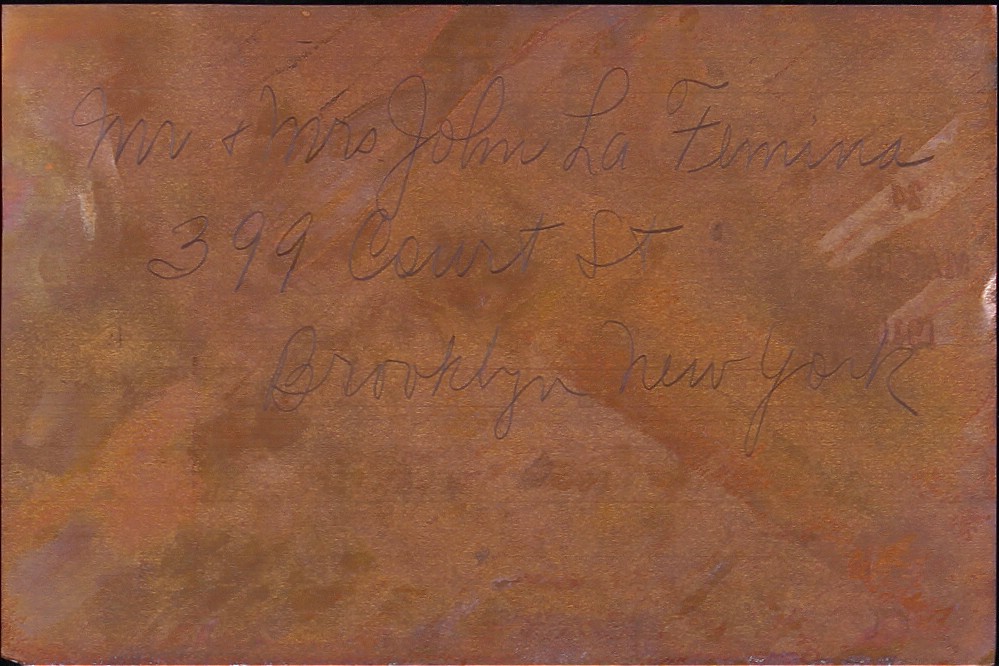 Mr + Mrs. John La Femina
399 Court St
Brooklyn New York